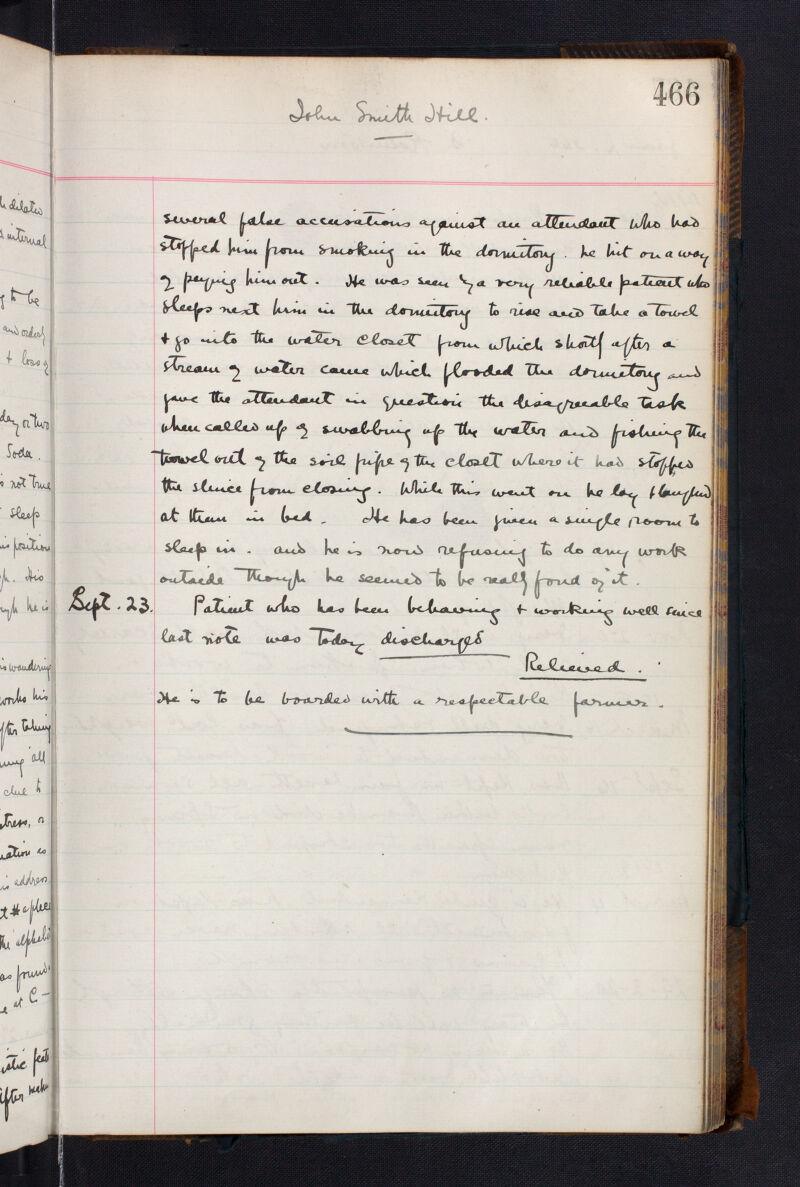 466
John Smith Hill.
several false accusations against an attendant who had
stopped him from smoking in the dormitory. he hit on a way
of paying him out. He was seen by a very reliable patient who
sleeps next him in the dormitory to rise and take a towel
+ go into the water closet from which shortly after a
stream of water came which flooded the dormitory and
gave the attendant in question the disagreeable task
when called up of swabbing up the water and fishing the
towel out of the soil pipe of the closet where it had stopped
the sluice from closing. While this went on he lay & laughed
at them in bed. He has been given a single room to
sleep in. and he is now refusing to do any work
outside though he seemed to be really fond of it.
Sept. 23. Patient who has been behaving + working well since
last note was today discharged
Relieved.
He is to be boarded with a respectable farmer.
h dilated
internal
g to be
and orderly
+ loss of
day or two
Soda.
is not true
sleep
his position
. His
he is
is wandering
works his
after taking
all
due to
stress, or
as
his address
the alphabet
as found
at C-
feat
after